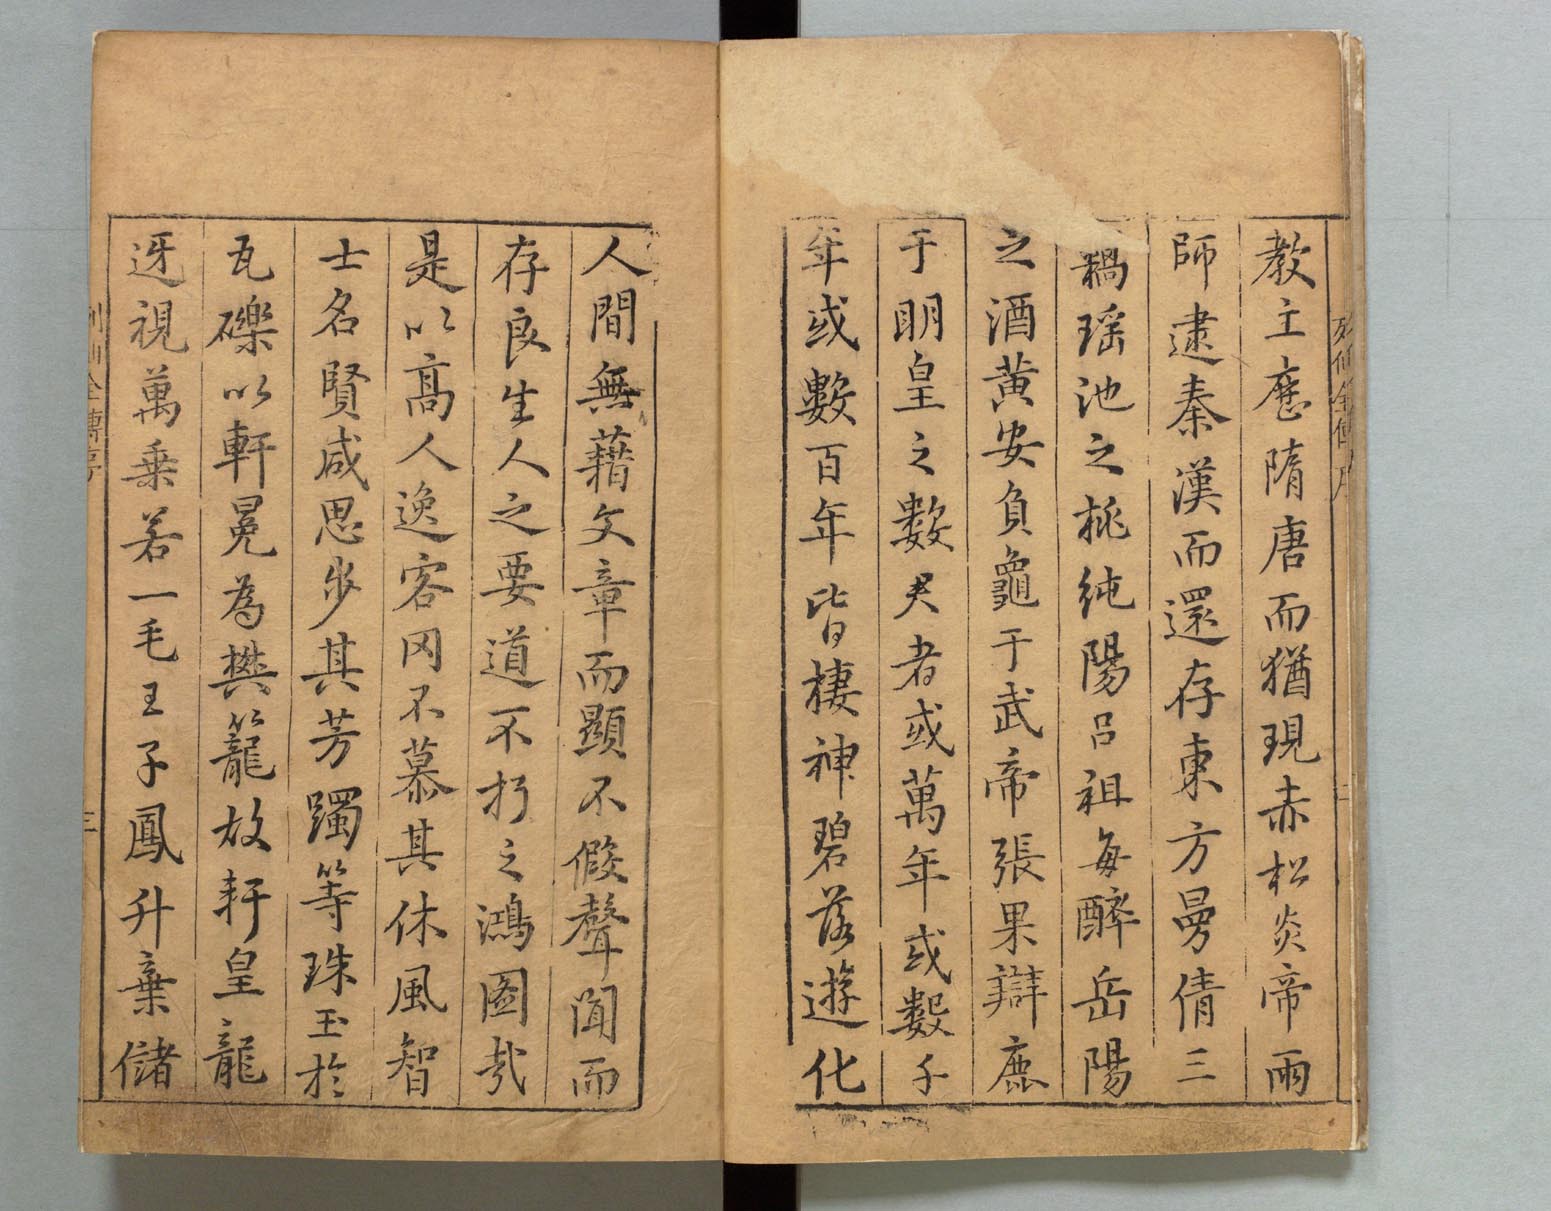 列仙全傳序
二
教主歷隋唐而猶現赤松炎帝雨
師逮秦漢而還存東方曼倩三
竊瑶池之桃純陽呂祖每醉岳陽
之酒黄安負龜于武帝張果辯鹿
于明皇之數君者或萬年或數千
年或數百年皆棲神碧落遊化
人間無藉文章而顯不假聲聞而
存良生人之要道不朽之鴻圖哉
是以高人逸客罔不慕其休風智
士名賢咸思步其芳躅等珠玉於
瓦礫以軒冕為樊籠故軒皇龍
迓視萬乗若一毛王子鳳升棄儲
列仙全傳序
三